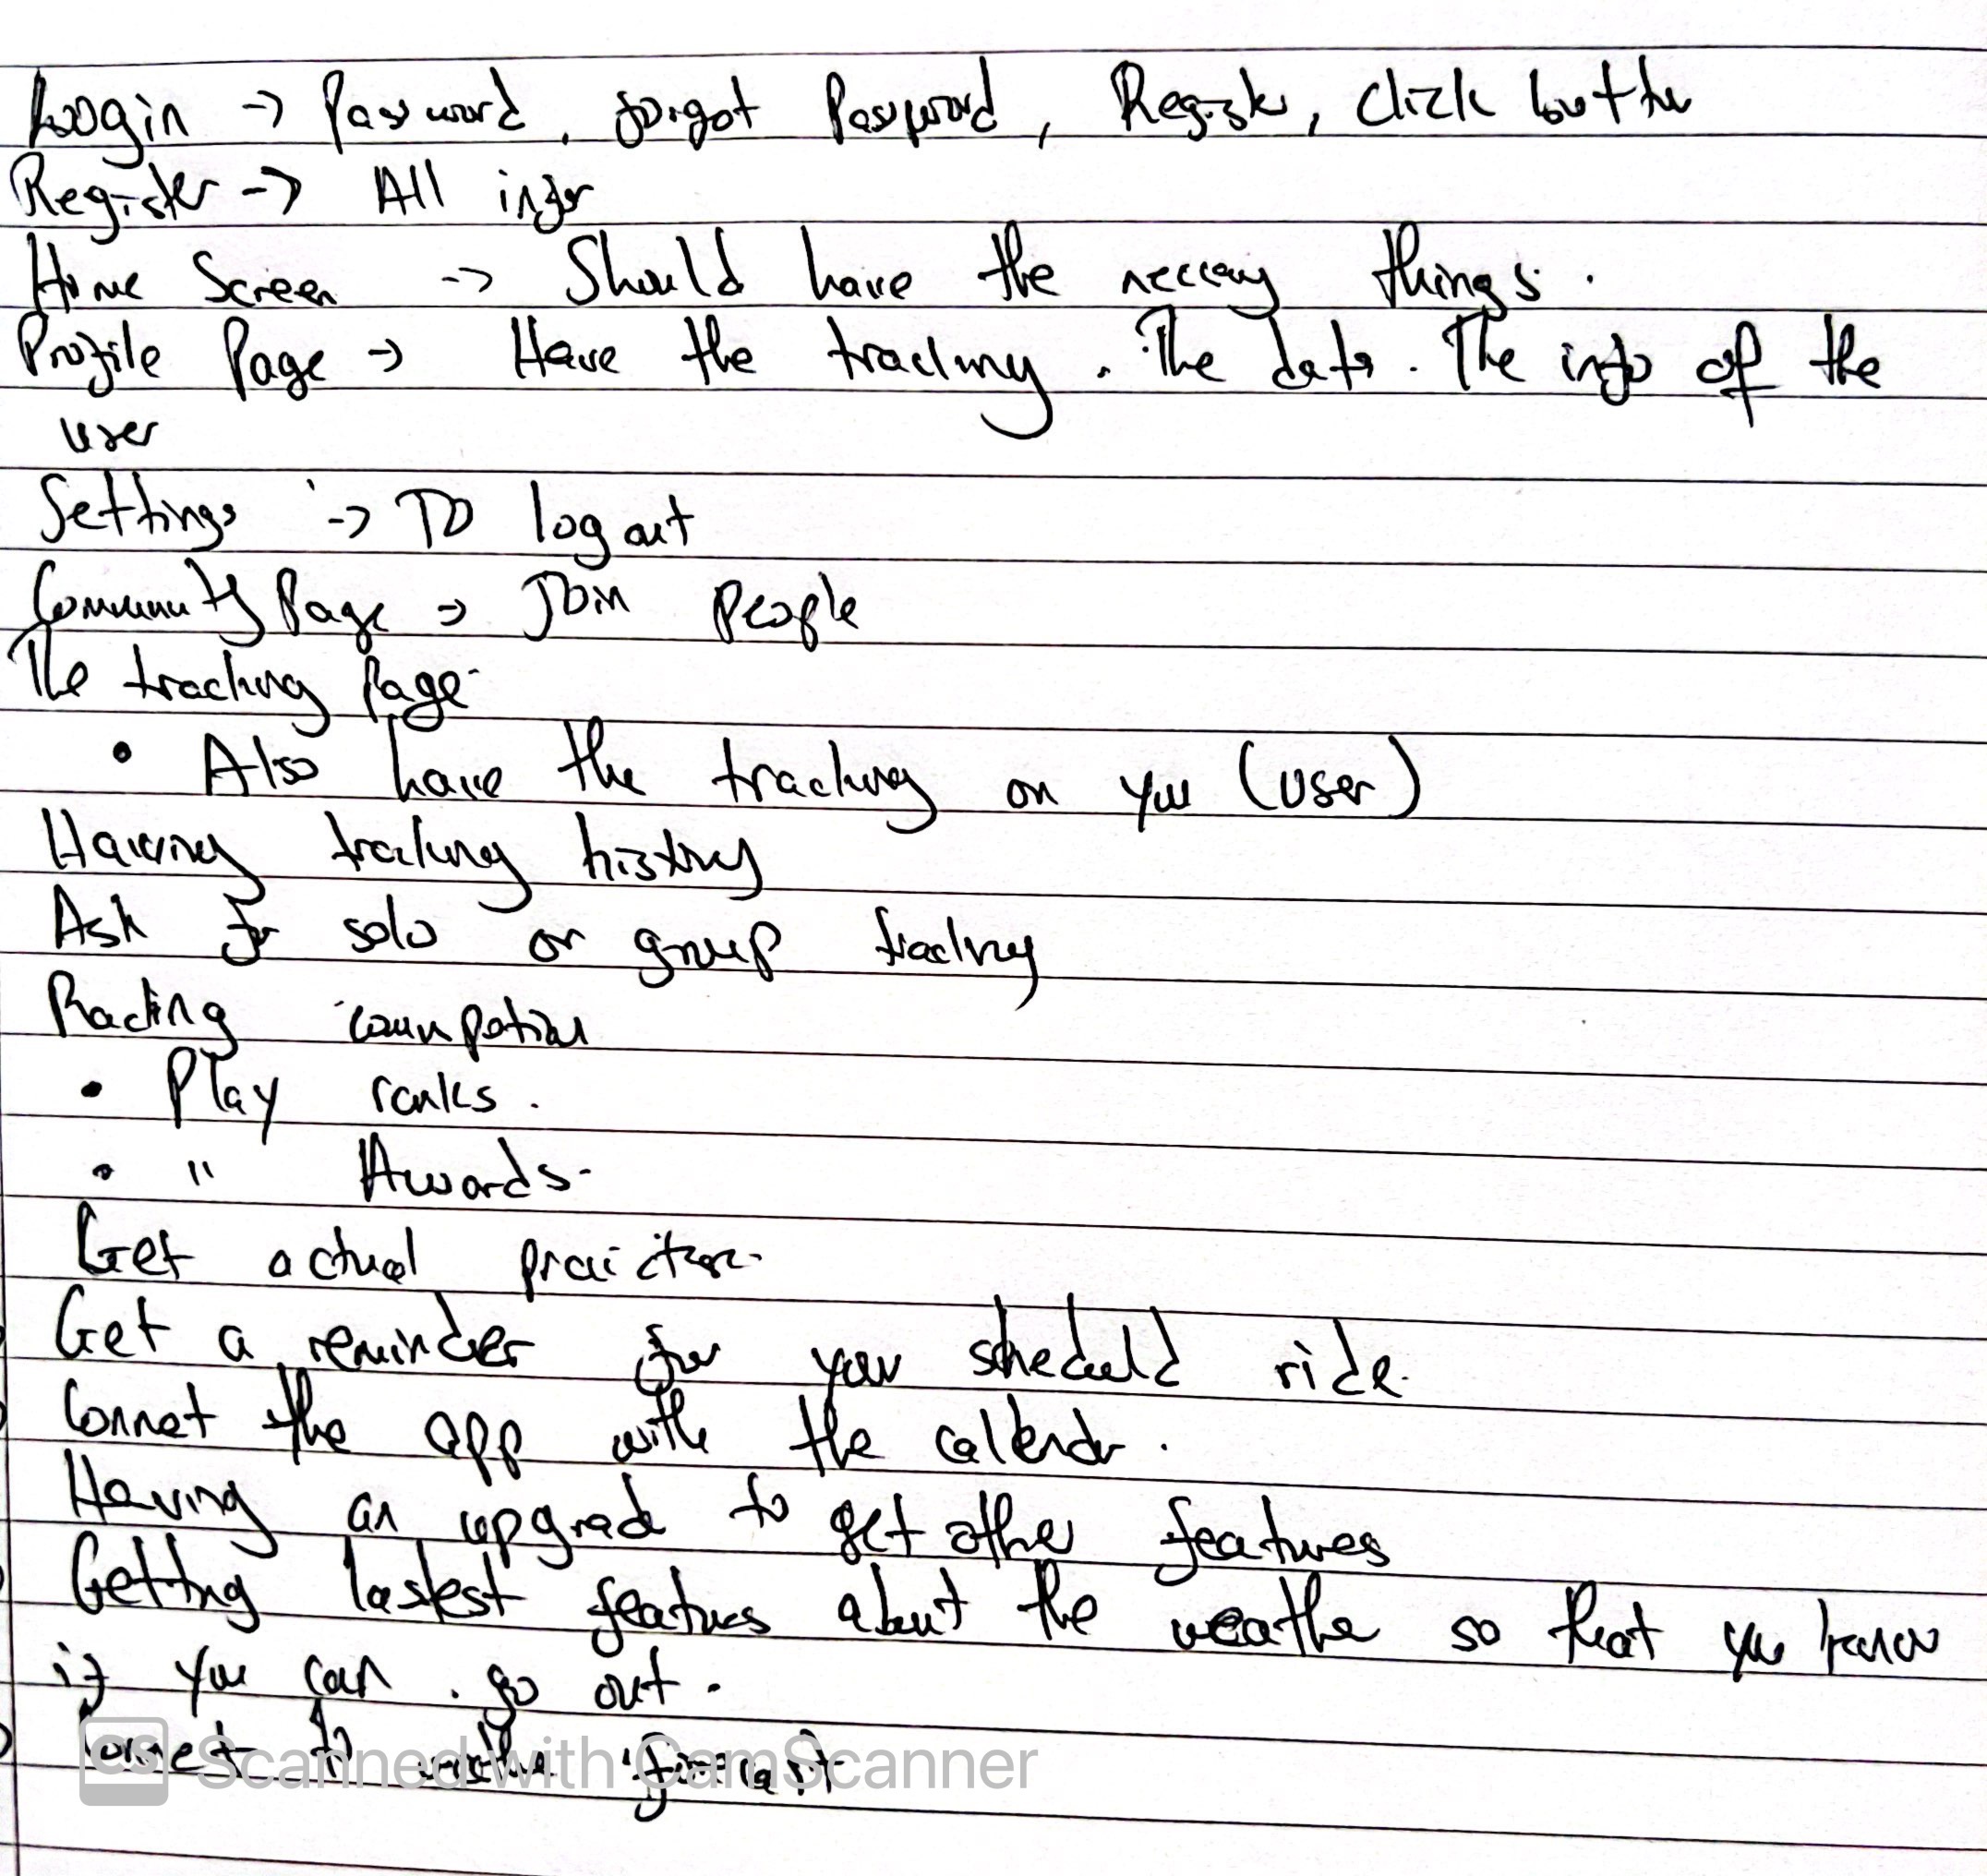 Login -> Password, forgot Password, Register, click button
Register -> All infor
Home Screen -> Should have the neccesy things.
Profile Page -> Have the tracking. The data. The info of the
user
Settings -> TO log out
Community Page -> Join People
The tracking Page
• Also have the tracking on you (user)
Having tracking history
Ask for solo or group tracking
Racing
• Play ranks.
• " Awards.
Get actual
Get a reminder for your scheduld ride.
Connet the app with the calendr.
Having an upgrade to get other features
Getting lastest features about the weather so that you know
if you can go out.
Connect to weather forecast
CS Scanned with CamScanner